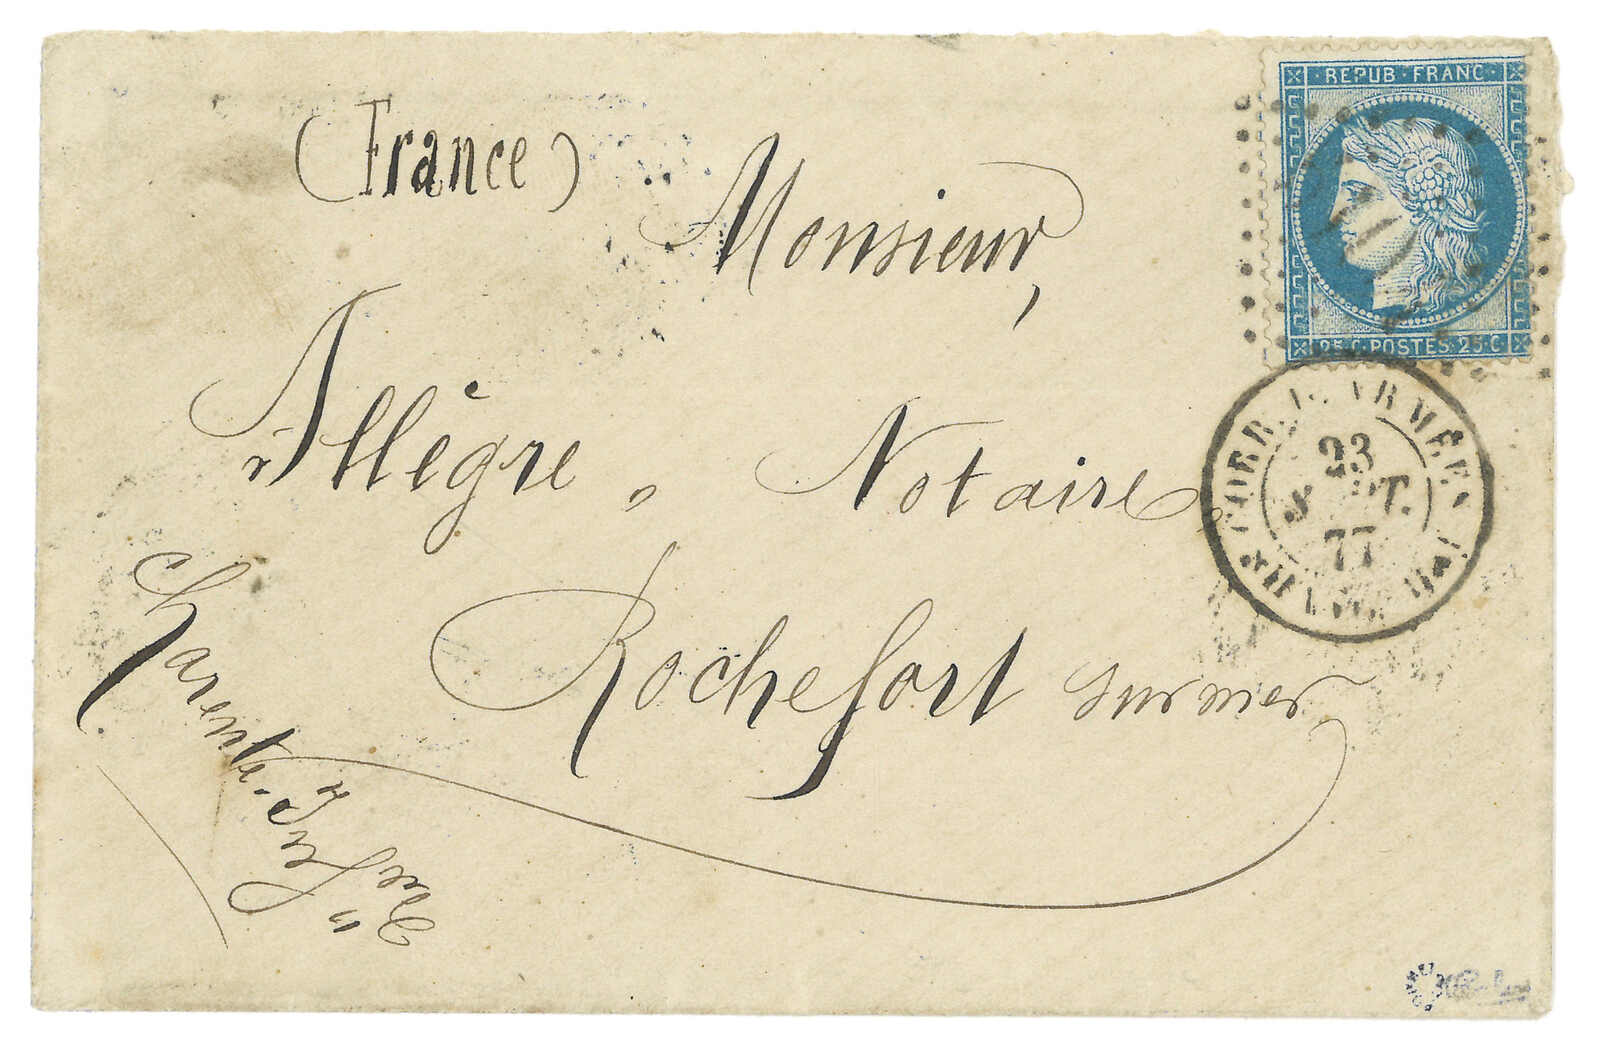 (France)
REPUB·FRANC·
25 C·POSTES·25 C
Monsieur,
Allègre, Notaire,
Rochefort sur mer
Charente Infre
CORR. D. ARMÉES
23
SEPT.
77